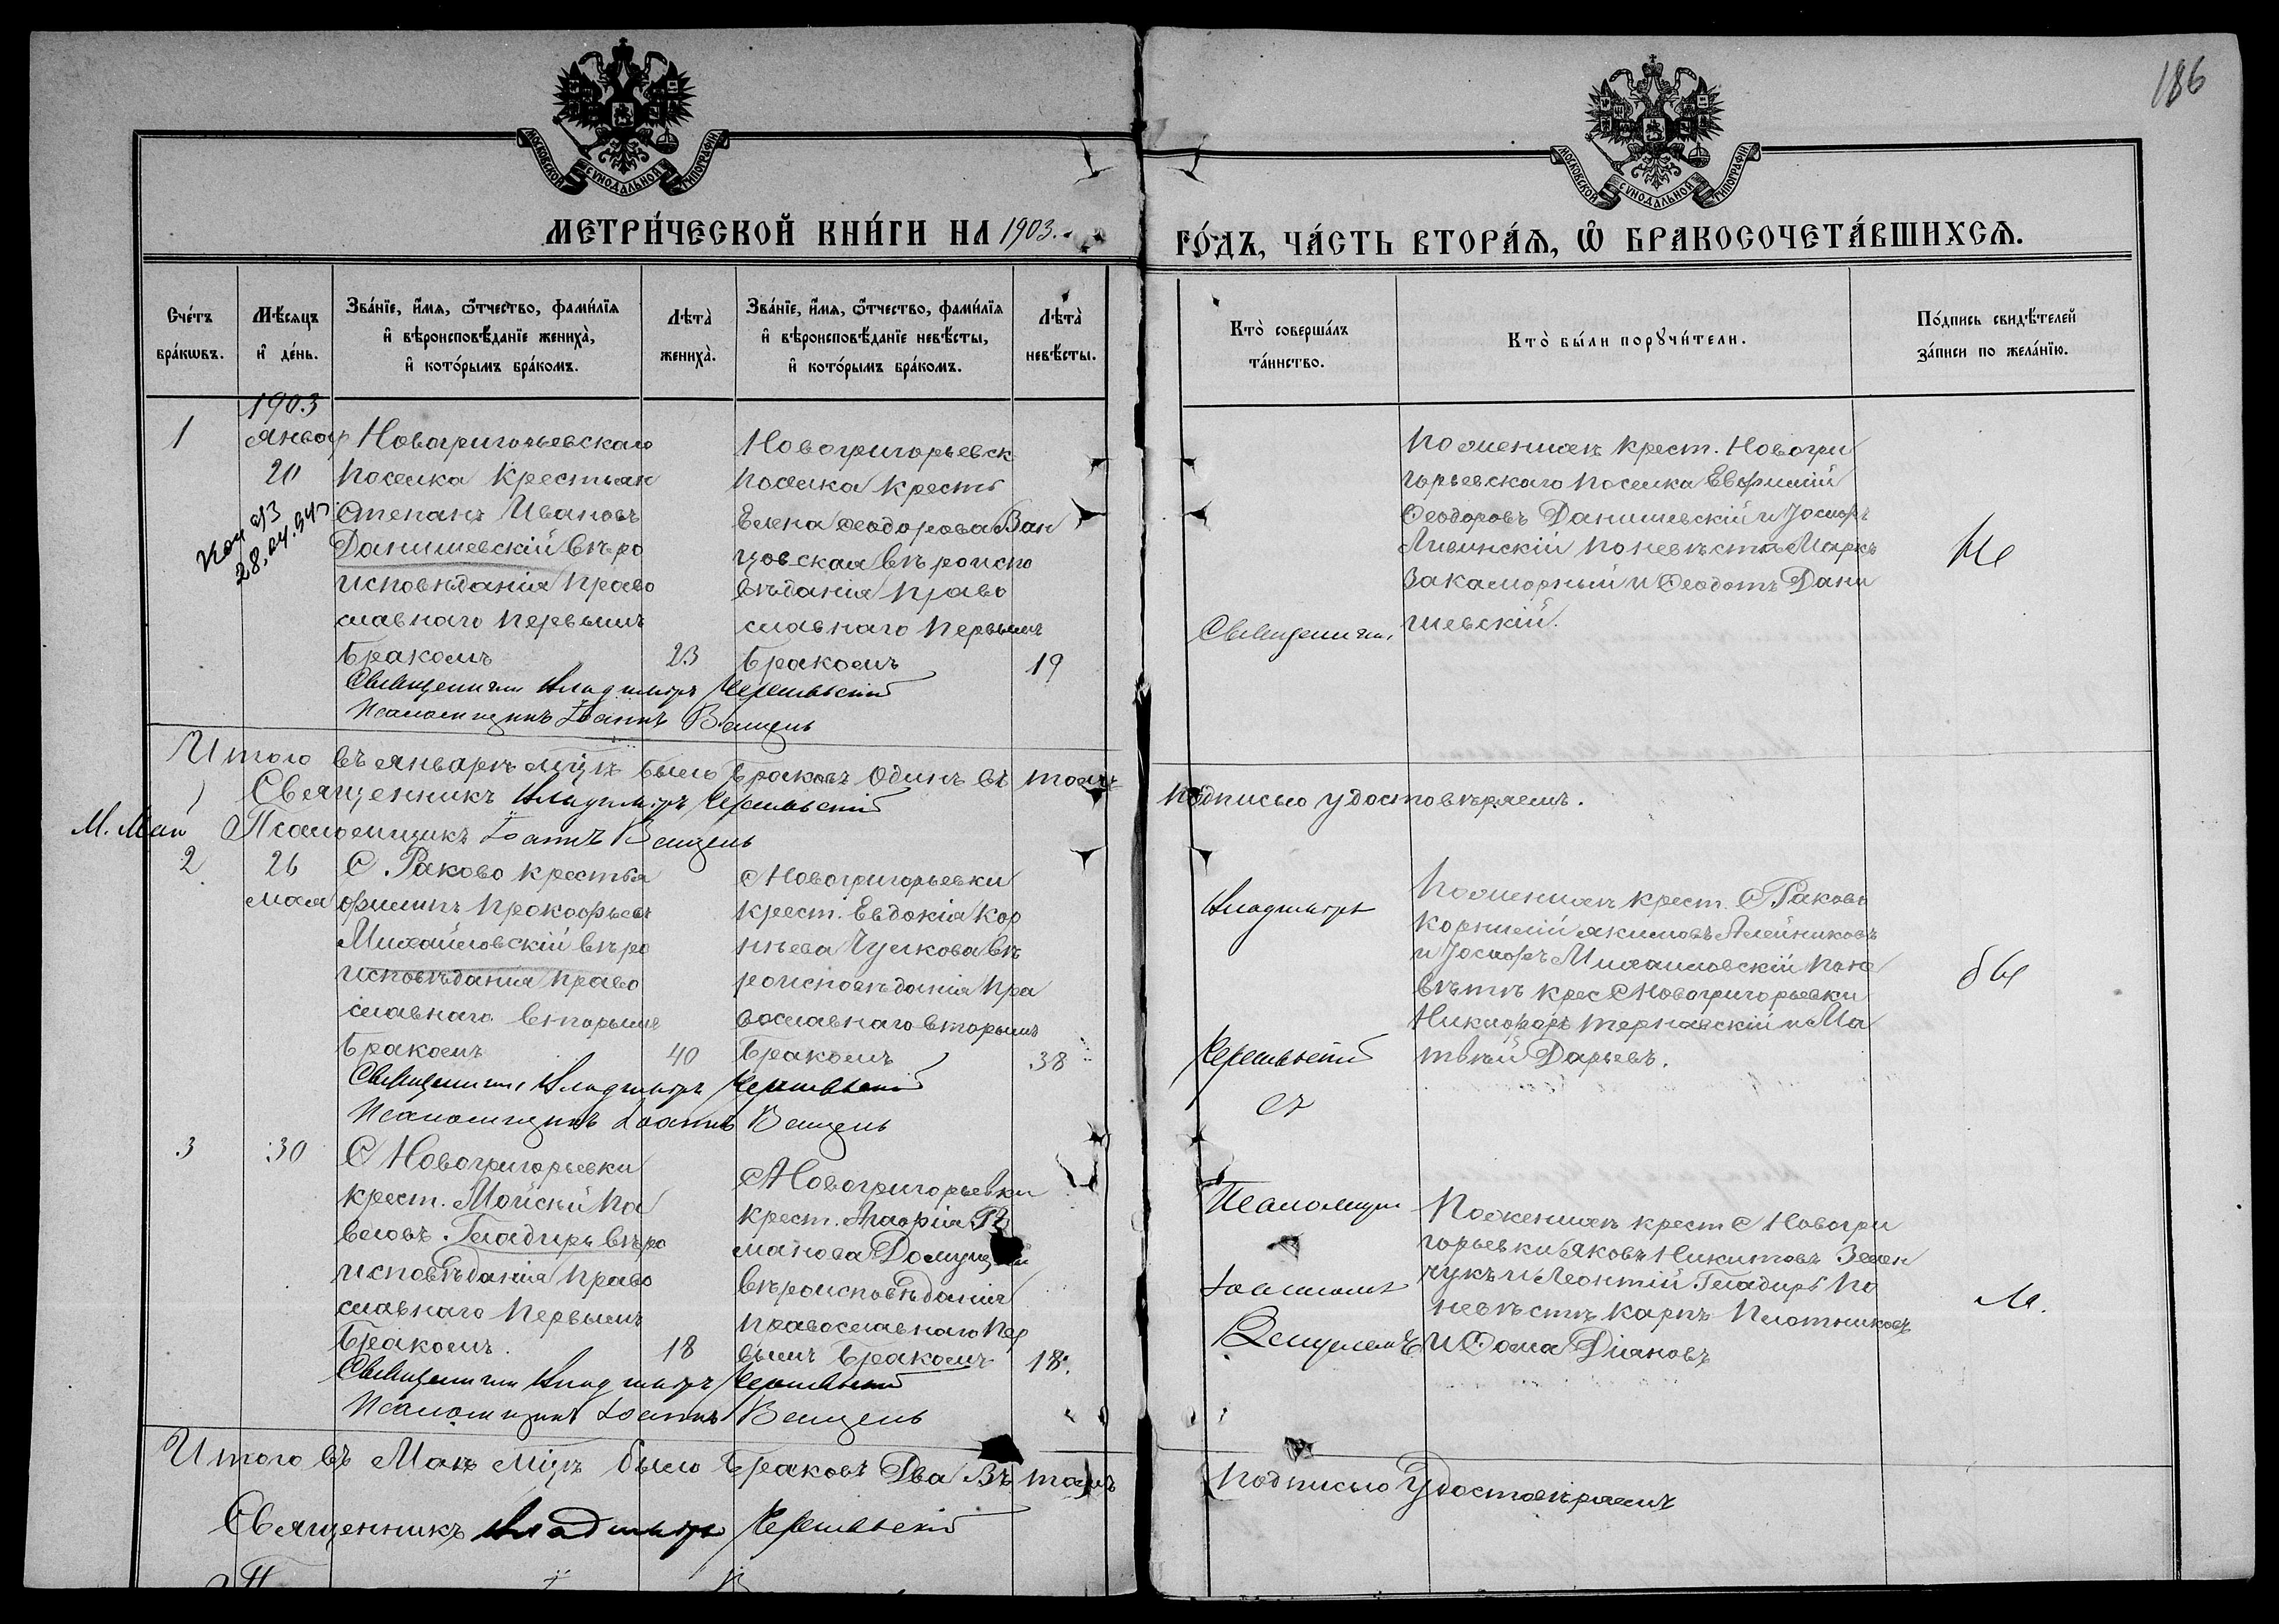 186
МОСКОВСКОЙ СѴНОДАЛЬНОЙ ТИПОГРАФІИ
МОСКОВСКОЙ СѴНОДАЛЬНОЙ ТИПОГРАФІИ
МЕТРИ́ЧЕСКОЙ КНИ́ГИ НА 1903.
ГО́ДЪ, ЧА́СТЬ ВТОРА́Ѧ, Ѡ҆ БРАКОСОЧЕТА́ВШИХСѦ.
Сче́тъ бра́кѡвъ.
Мѣ́сѧцъ и҆ де́нь.
Зва́нїе, и҆́мѧ, ѻ҆́тчество, фами́лїѧ
и҆ вѣроисповѣ́данїе жениха̀,
и҆ кото́рымъ бра́комъ.
Лѣта̀ жениха̀.
Зва́нїе, и҆́мѧ, ѻ҆́тчество, фами́лїѧ
и҆ вѣроисповѣ́данїе невѣ́сты,
и҆ кото́рымъ бра́комъ.
Лѣта̀ невѣ́сты.
Кто̀ соверша́лъ та́инство.
Кто̀ бы́ли порꙋчи́тели.
По́дпись свидѣ́телей за́писи по жела́нїю.
1
1903
Январ
20
28.04.94
Новогригорьевскаго
поселка крестьян
Степанъ Ивановъ
Данишевскій вѣро
исповѣданія право
славнаго первымъ
бракомъ
23
Новогригорьевск
поселка крестья
Елена Феодорова Ван
цовская вѣроиспо
вѣданія право
славнаго первымъ
бракомъ
19
Священник
По женихѣ крест. Новогри
горьевскаго поселка Евфимій
Феодоровъ Данишевскій и Іосифъ
Ливинскій по невѣстѣ Маркъ
Закаморный и Феодотъ Дани
шевскій.
Не
Священникъ Владиміръ
Псаломщикъ Іоаннъ Ващень
Итого въ январѣ мцѣ было браковъ одинъ въ томъ
подписью удостовѣряемъ.
Священникъ Владиміръ
М. Май
Псаломщикъ Іоаннъ Ващень
2
26
мая
С. Раково крестья
Филипъ Прокофьевъ
Михайловскій вѣро
исповѣданія право
славнаго вторымъ
бракомъ
40
С Новогригорьевки
крест. Евдокія Кор
нѣева Чулкова вѣ
роисповѣданія пра
вославнаго вторымъ
бракомъ
38
Владиміръ
съ
По женихѣ крест. С Раково
Корнилій Якимовъ Алейниковъ
и Іосифъ Михаиловскій по не
вѣстѣ крес С Новогригорьевки
Никифоръ Тернавскій и Ма
твѣй Дарьевъ.
бы
Священникъ Владиміръ
Псаломщикъ Іоаннъ Ващень
3
30
С Новогригорьевки
крест. Мойсѣй Па
вловъ Гладиръ вѣро
исповѣданія право
славнаго первымъ
бракомъ.
18
С Новогригорьевки
крест. Марія
вѣроисповѣданія
православнаго пер
вымъ бракомъ
18.
Псаломщи
Іоанномъ
Ващенемъ
По женихѣ крест С Новогри
горьевки Яковъ Никитовъ Зелен
чукъ и Леонтій Гладиръ по
невѣстѣ Карпъ Плотниковъ
и Фома Діановъ
ло.
Священникъ Владиміръ
Псаломщикъ Іоаннъ Ващень
Итого въ Маѣ мцѣ было браковъ Два въ томъ
подписью удостовѣряемъ
Священникъ Владиміръ